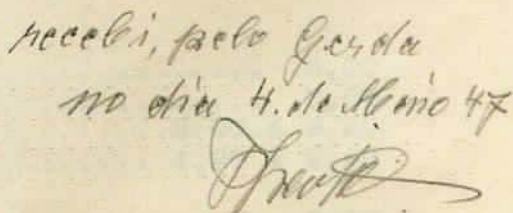 recebi, pelo Gerda
no dia 4. de Maio 47